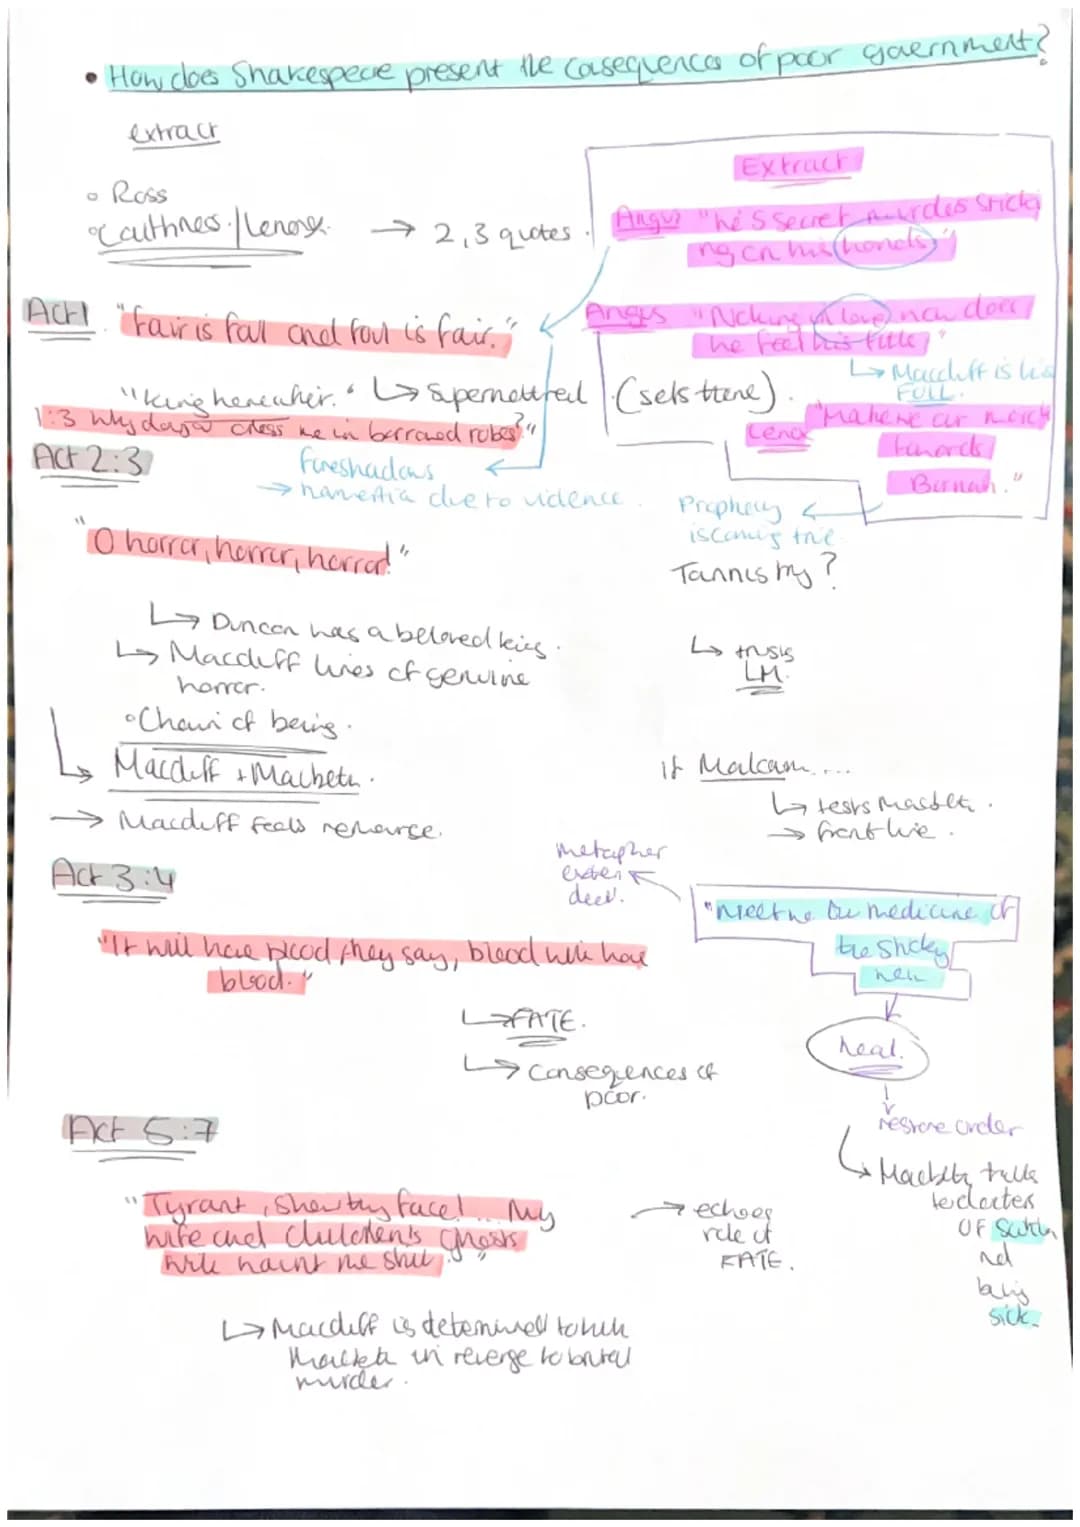 • How does Shakespeare present the Casequences of poor government?
extract
Ross
Caithness / Lenox → 2,3 quotes.
Extract
Angus "he's secret murders sticki
ng on his hands"
Act 1 "Fair is fall and foul is fair."
Angus "Nothing in love, now does
he feel his title"
↳ Macduff is his
FULL.
"King hereafter." ↳ Supernatural (sets theme).
1:3 Why do you dress me in borrowed robes?"
Lenox "Make we our march
towards
Birnam."
Act 2:3
foreshadows
→ hamertia due to violence.
Prophecy
is coming true.
Tannistry?
"O horror, horror, horror!"
↳ Duncan was a beloved king.
↳ Macduff lines of genuine
horror.
↳ trusts
LM.
◦ Chain of being.
↳ Macduff + Macbeth.
If Malcolm....
↳ tests Macbeth.
→ front line.
→ Macduff feels remourse.
metapher
exten
ded.
Act 3:4
"Meet we the medicine of
the sickly
weal
"It will have blood they say, blood will have
blood."
↳ FATE.
heal.
↳ Consequences of
poor.
restore order
Act 5:7
↳ Macbeth talks
to doctor
OF Scotland
being
sick.
"Tyrant, show thy face! ... My
wife and Children's ghosts
will haunt me still."
→ echoes
role of
FATE.
↳ Macduff is determined to kill
Macbeth in revenge to brutal
murder.